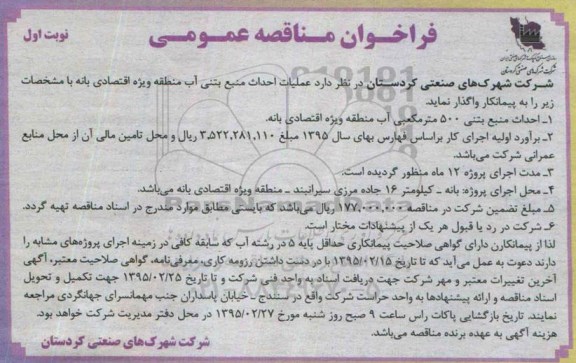 نوبت اول
فراخوان مناقصه عمومی
شرکت شهرک‌های صنعتی کردستان
شرکت شهرک‌های صنعتی کردستان در نظر دارد عملیات احداث منبع بتنی آب منطقه ویژه اقتصادی بانه با مشخصات
زیر را به پیمانکار واگذار نماید.
۱ـ احداث منبع بتنی ۵۰۰ مترمکعبی آب منطقه ویژه اقتصادی بانه.
۲ـ برآورد اولیه اجرای کار براساس فهارس بهای سال ۱۳۹۵ مبلغ ۳,۵۲۲,۲۸۱,۱۱۰ ریال و محل تامین مالی آن از محل منابع
عمرانی شرکت می‌باشد.
۳ـ مدت اجرای پروژه ۱۲ ماه منظور گردیده است.
۴ـ محل اجرای پروژه: بانه ـ کیلومتر ۱۶ جاده مرزی سیرانبند ـ منطقه ویژه اقتصادی بانه می‌باشد.
۵ـ مبلغ تضمین شرکت در مناقصه ۱۷۷,۰۰۰,۰۰۰ ریال می‌باشد که بایستی مطابق موارد مندرج در اسناد مناقصه تهیه گردد.
۶ـ شرکت در رد یا قبول هر یک از پیشنهادات مختار است.
لذا از پیمانکارن دارای گواهی صلاحیت پیمانکاری حداقل پایه ۵ در رشته آب که سابقه کافی در زمینه اجرای پروژه‌های مشابه را
دارند دعوت به عمل می‌آید که تا تاریخ ۱۳۹۵/۰۲/۱۵ با در دست داشتن رزومه کاری، معرفی‌نامه، گواهی صلاحیت معتبر، آگهی
آخرین تغییرات معتبر و مهر شرکت جهت دریافت اسناد به واحد فنی شرکت و تا تاریخ ۱۳۹۵/۰۲/۲۵ جهت تکمیل و تحویل
اسناد مناقصه و ارائه پیشنهادها به واحد حراست شرکت واقع در سنندج ـ خیابان پاسداران جنب مهمانسرای جهانگردی مراجعه
نمایند. تاریخ بازگشایی پاکات راس ساعت ۹ صبح روز شنبه مورخ ۱۳۹۵/۰۲/۲۷ در محل دفتر مدیریت شرکت خواهد بود.
هزینه آگهی به عهده برنده مناقصه می‌باشد.
شرکت شهرک‌های صنعتی کردستان